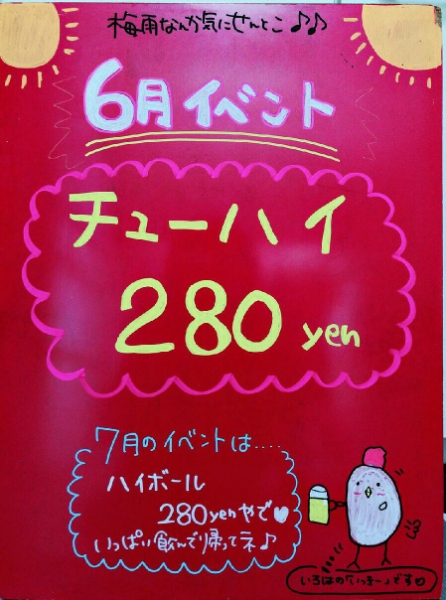 梅雨なんか気にせんとこ♪♪
6月イベント
チューハイ
280 yen
7月のイベントは....
ハイボール
280yenやで♥
いっぱい飲んで帰ってネ♪
いろはの
です